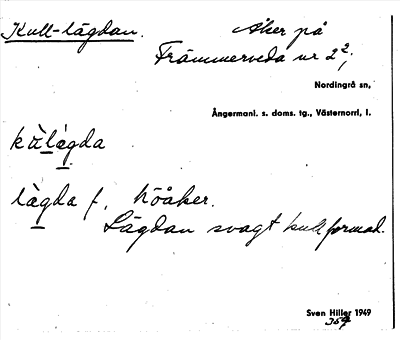 Kull-lägdan. Åker på
Främmerveda nr 2²;
Nordingrå sn,
Ångermanl. s. doms. tg., Västernorrl, l.
kùlägda
lägda f. höåker.
Lägdan svagt kullformad.
Sven Hiller 1949